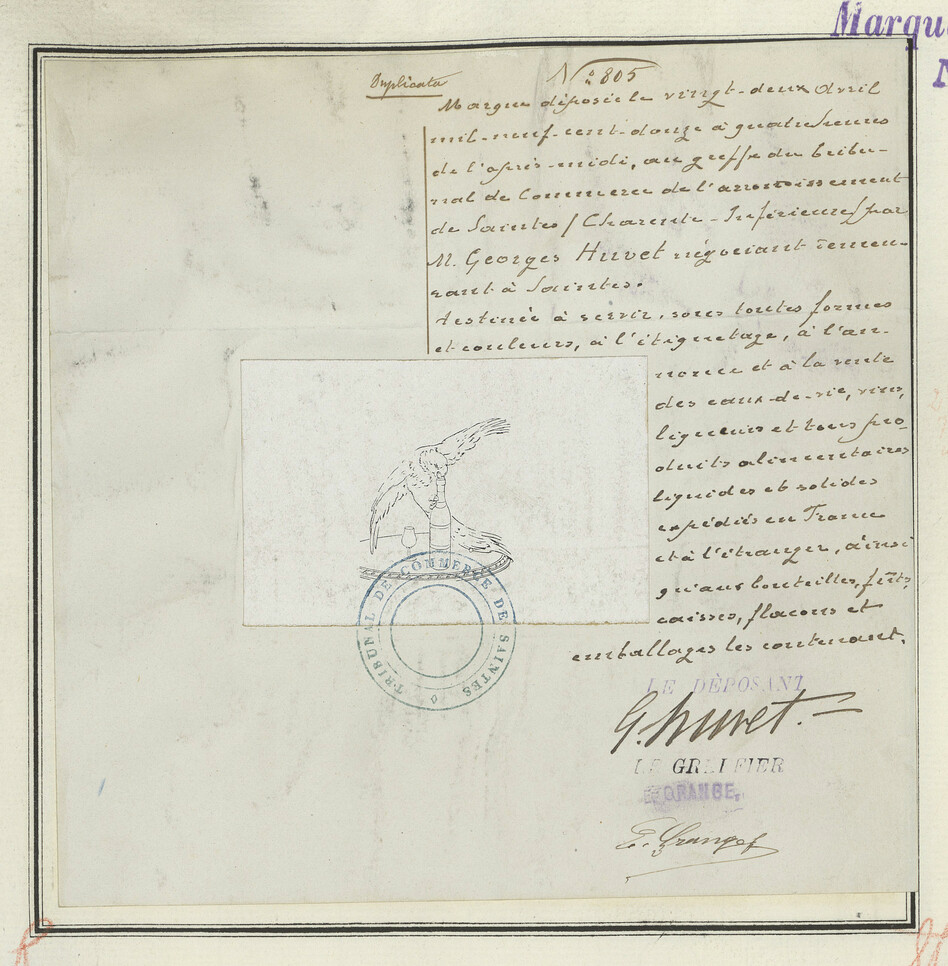 Marqu
N
Duplicata
N° 805
Marque déposée le vingt-deux Avril
mil-neuf-cent-douze à quatre heures
de l'après-midi, au greffe du tribu-
nal de Commerce de l'arrondissement
de Saintes (Charente-Inférieure) par
M. Georges Huvet négociant demeu-
rant à Saintes.
destinée à servir, sous toutes formes
et couleurs, à l'étiquetage, à l'an-
nonce et à la vente
des eaux-de-vie, vins,
liqueurs et tous pro-
duits alimentaires
liquides et solides
expédiés en France
et à l'étranger, ainsi
qu'aux bouteilles, fûts,
caisses, flacons et
emballages les contenant.
TRIBUNAL DE COMMERCE DE SAINTES
LE DÉPOSANT
G. Huvet.
LE GREFFIER
GRANGE.
E. Grange